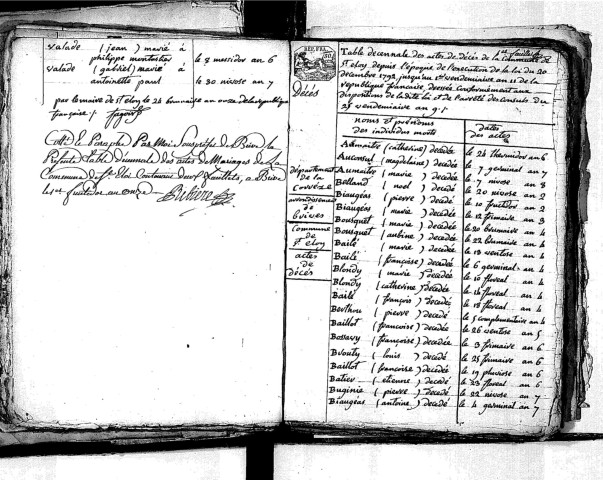 valade (jean) marié à
philippe montastier le 8 messidor an 6
valade (gabriel) marié à
antoinette paul le 30 nivose an 7
par le maire de St eloy le 28 brumaise an onze de la république
française
Cotté et Paraphé Par Moi Sousprefet de Brive la
Présente table décennale des actes de Mariages de la
Commune de St eloi
le 1er fructidor an onze
Décès
département
de la
corrèze
arrondissement
de
brives
Commune
de
St eloy
actes
de
décès
Table decennale des actes de décès de la commune de
St eloy, depuis l'époque de l'execution de la loi du 20
décembre 1792 jusqu'au 1er vendemiaire an 11 de la
république francaise, dressée conformement aux
dispositions de la dite loi et de l'areté des Consuls du
25 vendemiaire an 9
noms et prénoms
des individus morts
dates
des actes
(catherine) decedée le 24 thermidor an 6
(magdelaine) decedé le 7 germinal an 7
(marie) decedée le 7 nivose an 8
Belland (noel) decedé le 20 nivose an 2
Biaugéas (pierre) decedé le 10 fructidor an 2
Biaugéas (marie) decedée le 12 frimaire an 3
Bousquet (marie) decedée le 20 brumaire an 4
Bousquet (aubine) decedée le 22 brumaire an 4
Bailé (marie) decedée le 13 ventose an 4
Bailé (françoise) decedée le 6 germinal an 4
Blondy (marie) decedée le 10 floreal an 4
Blondy (catherine) decedée le 16 floreal an 4
Bailé (françois) decedé le 18 floreal an 4
Berthou (pierre) decedé le 5 complementaire an 4
Baillot (françoise) decedée le 26 ventose an 5
(françoise) decedée le 3 frimaire an 6
Brouty (louis) decedé le 25 frimaire an 6
Baillot (françoise) decedé le 19 pluviose an 6
Batier (etienne) decedé le 23 floreal an 6
Buginie (pierre) decedé le 22 nivose an 7
Biaugéas (antoine) decedé le 4 germinal an 7